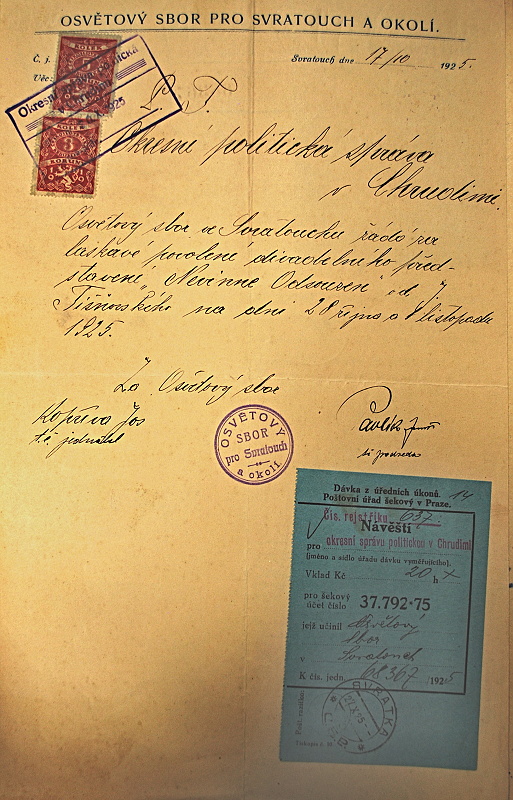 OSVĚTOVÝ SBOR PRO SVRATOUCH A OKOLÍ.
Č. j.
Svratouch dne 17/10 1925.
Věc:
KOLEK
KOLEK
3
KORUNY
P. T.
Okresní politická správa
v Chrudimi.
Osvětový sbor ve Svratouchu žádá za
laskavé povolení divadelního před-
stavení „Nevinně Odsouzení" od J.
Tišňovského na dni 28 října a 8 listopadu
1925.
Za Osvětový sbor
Kopřiva Jos
t.č. jednatel
OSVĚTOVÝ
SBOR
pro Svratouch
a okolí
Pavlík
t.č. předseda
Dávka z úředních úkonů. 14
Poštovní úřad šekový v Praze.
Čís. rejstříku 637
Návěští
pro okresní správu politickou v Chrudimi
(jméno a sídlo úřadu dávku vyměřujícího).
Vklad Kč 20 h
pro šekový
účet číslo 37.792·75
jejž učinil Osvětový
Sbor
v Svratouch
K čís. jedn. 68367 1925
SVRATKA